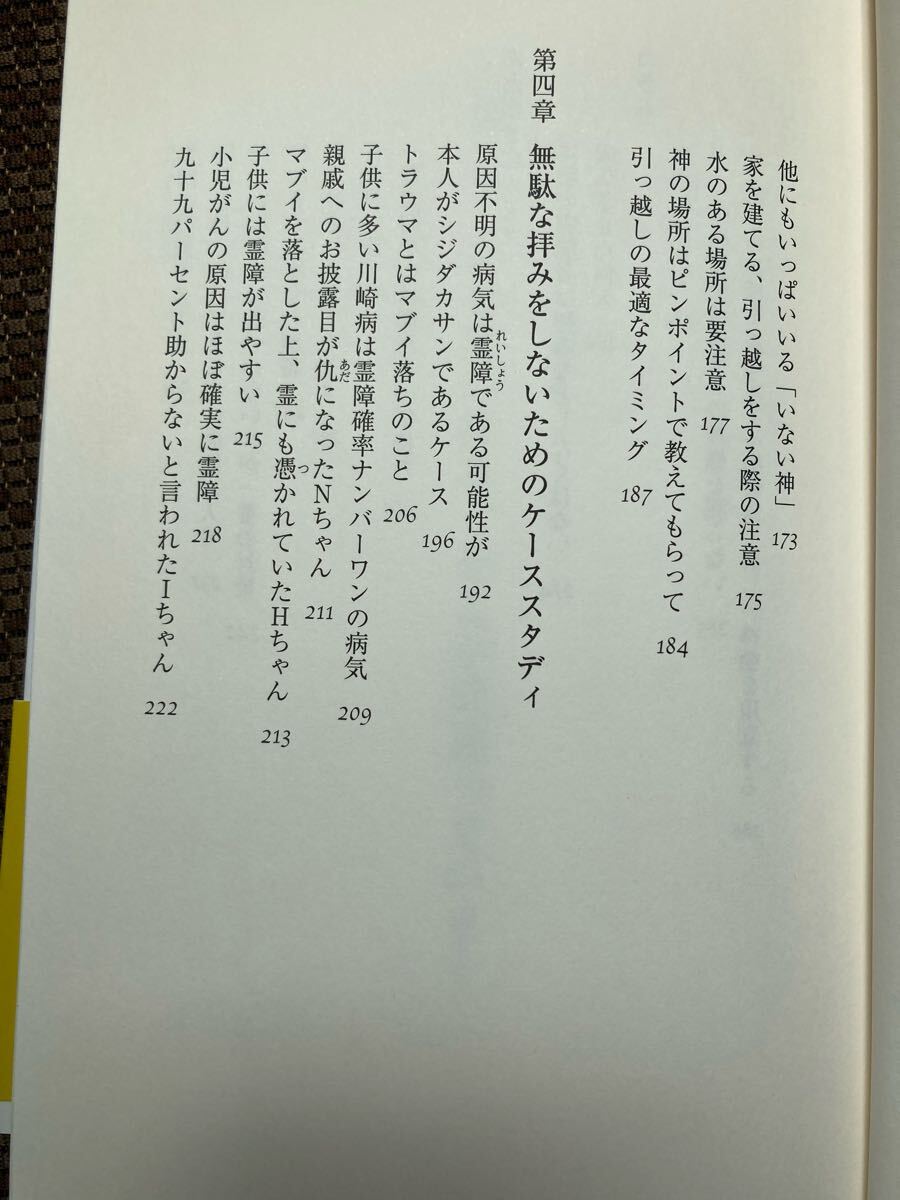 他にもいっぱいいる「いない神」 173
家を建てる、引っ越しをする際の注意 175
水のある場所は要注意 177
神の場所はピンポイントで教えてもらって 184
引っ越しの最適なタイミング 187
第四章 無駄な拝みをしないためのケーススタディ
原因不明の病気は霊障である可能性が 192
れいしょう
本人がシジダカサンであるケース 196
トラウマとはマブイ落ちのこと 206
子供に多い川崎病は霊障確率ナンバーワンの病気 209
親戚へのお披露目が仇になったNちゃん 211
あだ
マブイを落とした上、霊にも憑かれていたHちゃん 213
つ
子供には霊障が出やすい 215
小児がんの原因はほぼ確実に霊障 218
九十九パーセント助からないと言われたIちゃん 222